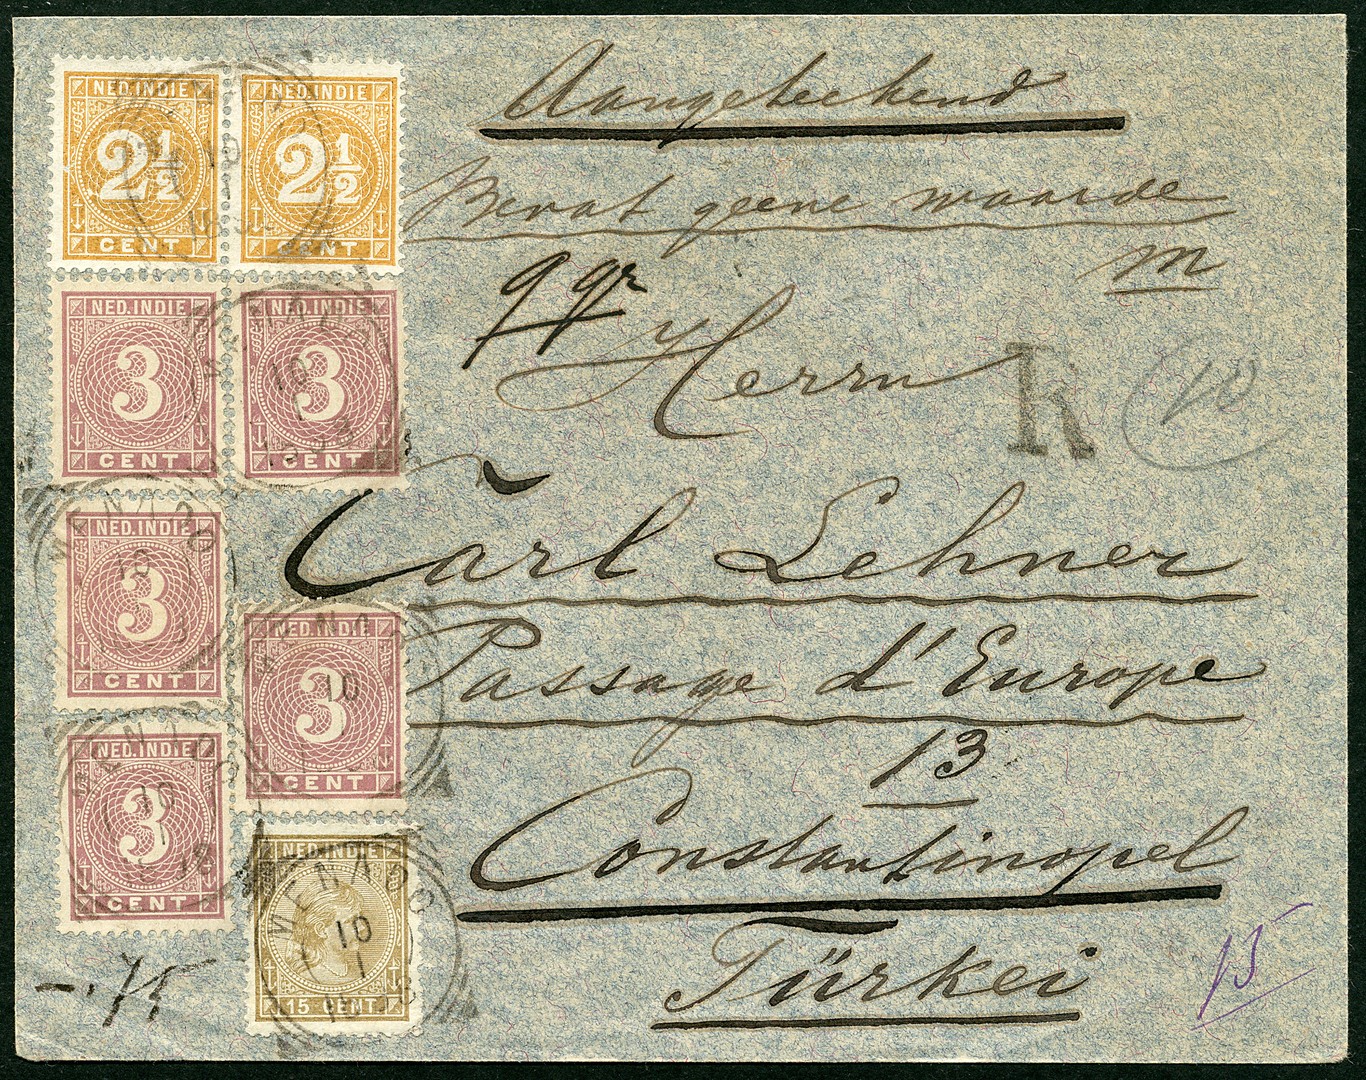 Aangeteekend
Bevat geene waarde
m
9 gr
Herrn
R
10
Carl Lehner
Passage d'Europe
13
Constantinopel
Türkei
15
NED. INDIE
2 1/2
CENT
NED. INDIE
2 1/2
CENT
NED. INDIE
3
CENT
NED. INDIE
3
CENT
NED. INDIE
3
CENT
NED. INDIE
3
CENT
NED. INDIE
3
CENT
NED-INDIE
15 CENT
MENADO
10
1
-.75